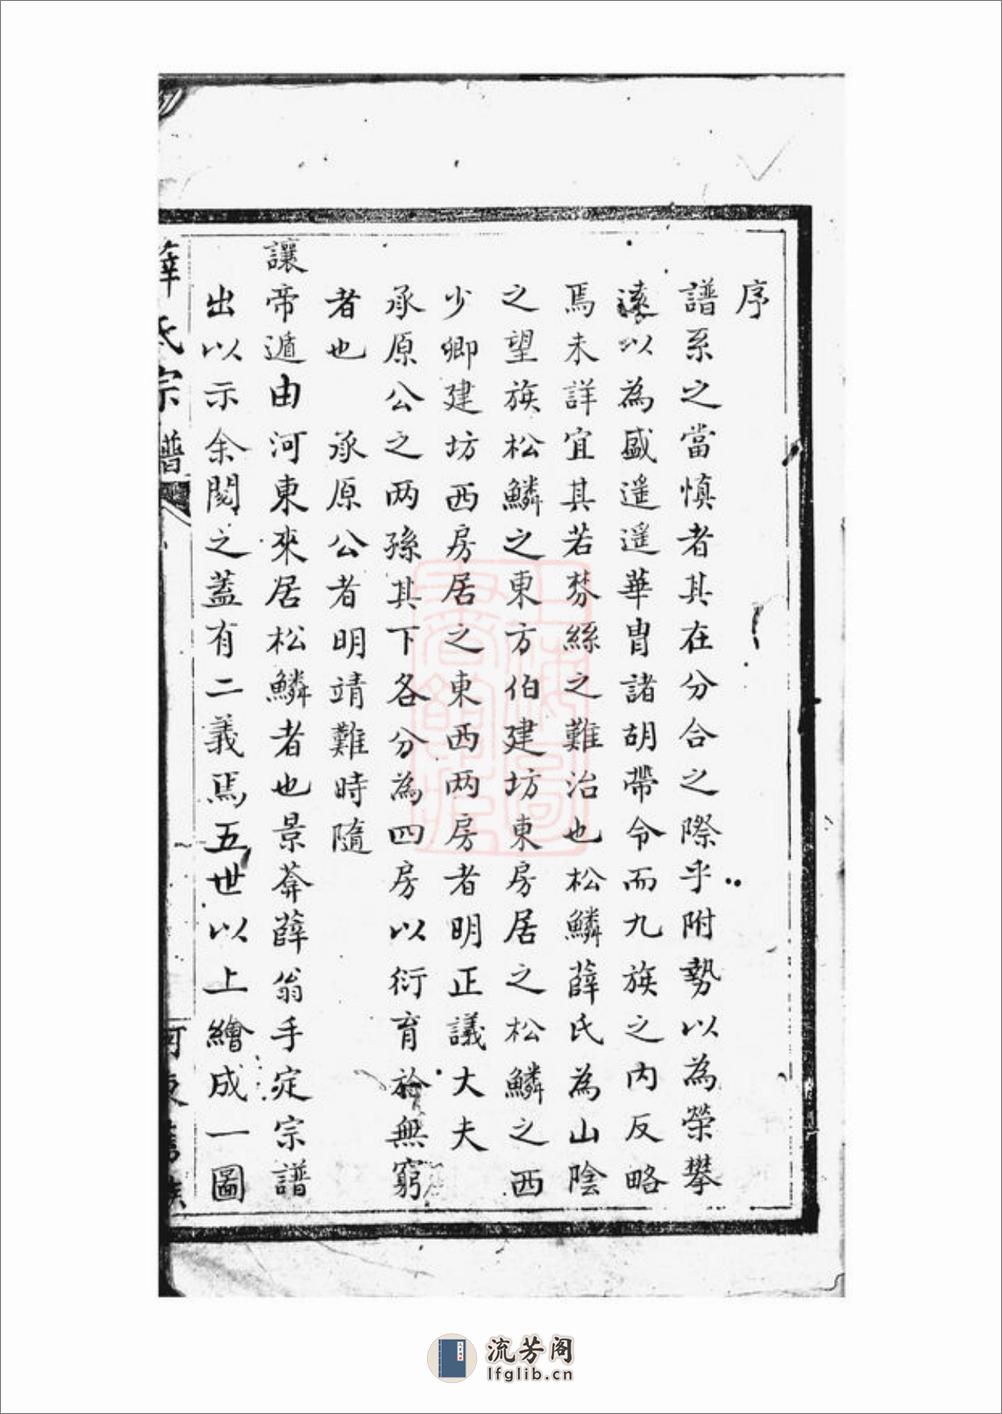 序
譜系之當慎者其在分合之際乎附勢以為榮攀
遠以為盛遥遥華胄諸胡帶令而九族之内反略
焉未詳宜其若棼絲之難治也松鱗薛氏為山陰
之望族松鱗之東方伯建坊東房居之松鱗之西
少卿建坊西房居之東西两房者明正議大夫
承原公之两孫其下各分為四房以衍育於無窮
者也 承原公者明靖難時隨
讓帝遁由河東來居松鱗者也景莾薛翁手定宗譜
出以示余閱之蓋有二義焉五世以上繪成一圖
薛氏宗譜
河東舊族
上海圖書館藏
流芳阁
lfglib.cn